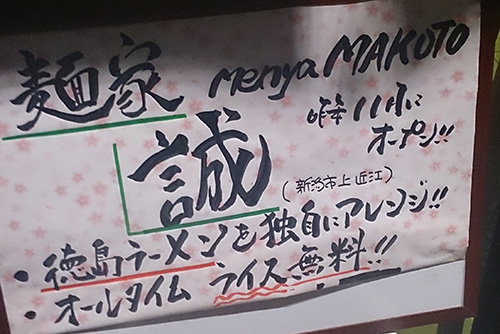 麺家 menya MAKOTO
誠
昨年11月に
オープン!!
(新潟市上近江)
・徳島ラーメンを独自にアレンジ!!
・オールタイム ライス無料!!